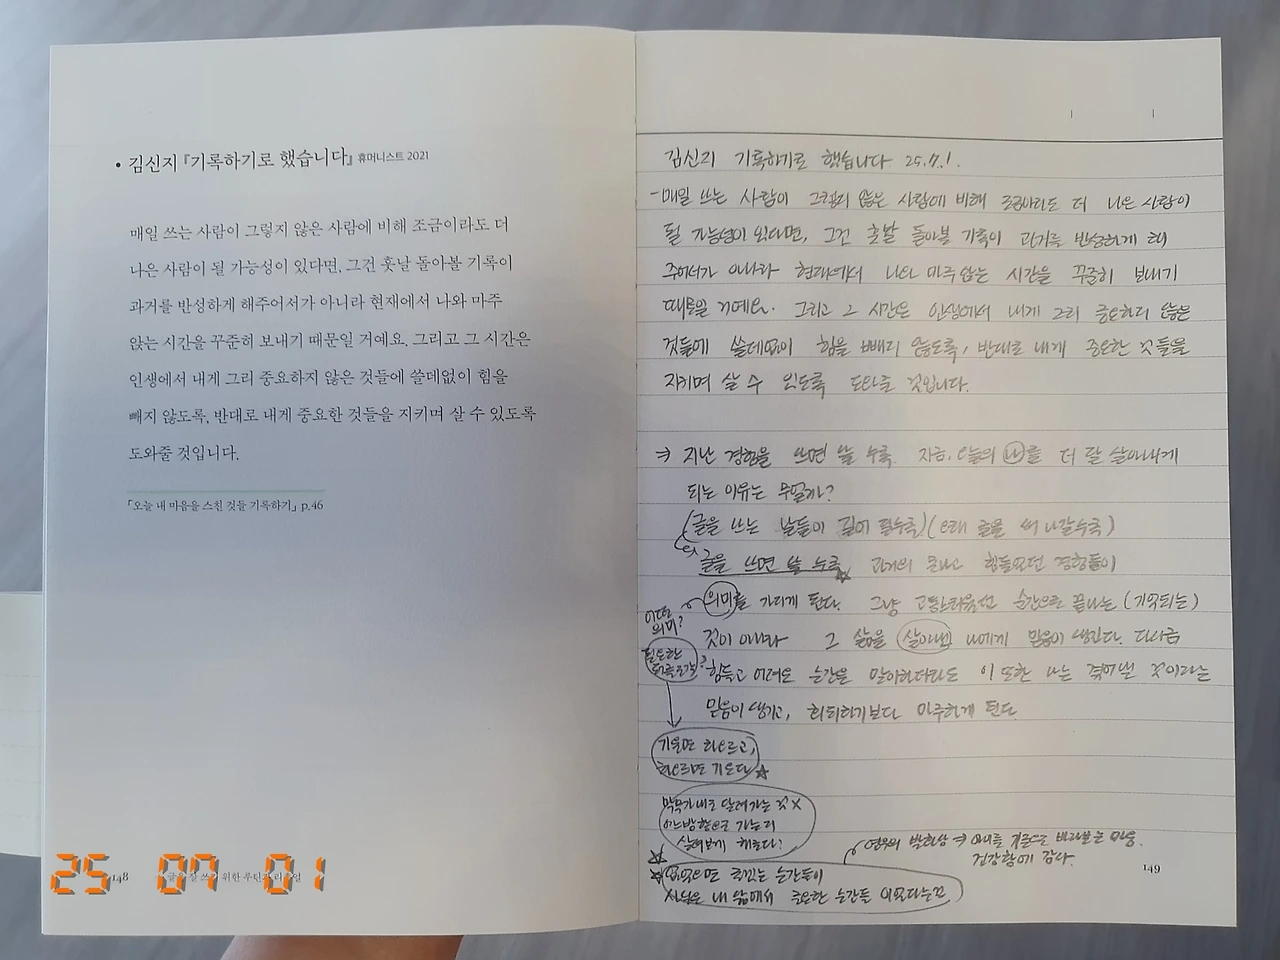 • 김신지 『기록하기로 했습니다』 휴머니스트 2021
매일 쓰는 사람이 그렇지 않은 사람에 비해 조금이라도 더
나은 사람이 될 가능성이 있다면, 그건 훗날 돌아볼 기록이
과거를 반성하게 해주어서가 아니라 현재에서 나와 마주
앉는 시간을 꾸준히 보내기 때문일 거예요. 그리고 그 시간은
인생에서 내게 그리 중요하지 않은 것들에 쓸데없이 힘을
빼지 않도록, 반대로 내게 중요한 것들을 지키며 살 수 있도록
도와줄 것입니다.
「오늘 내 마음을 스친 것들 기록하기」 p.46
148
글을 잘 쓰기 위한 루틴과 리추얼
25 07 01
김신지 기록하기로 했습니다 25.7.1.
- 매일 쓰는 사람이 그렇지 않은 사람에 비해 조금이라도 더 나은 사람이
될 가능성이 있다면, 그건 훗날 돌아볼 기록이 과거를 반성하게 해
주어서가 아니라 현재에서 나와 마주 앉는 시간을 꾸준히 보내기
때문일 거예요. 그리고 그 시간은 인생에서 내게 그리 중요하지 않은
것들에 쓸데없이 힘을 빼지 않도록, 반대로 내게 중요한 것들을
지키며 살 수 있도록 도와줄 것입니다.
지난 경험을 쓰면 쓸 수록 지금, 오늘의 나를 더 잘 살아내게
되는 이유는 무얼까?
(글을 쓰는 날들이 길어 질수록) (오래 글을 써 나갈수록)
글을 쓰면 쓸 수록 과거의 힘들었던 경험들이
어떤 의미?
의미를 가지게 된다. 그냥 고통스러웠던 순간으로 끝나는 (기억되는)
것이 아니라 그 삶을 살아낸 나에게 믿음이 생긴다. 다시금
필요한
힘들고 어려운 순간을 맞이하더라도 이 또한 나는 겪어낼 것이라는
믿음이 생기고, 회피하기보다 마주하게 된다
기우면 흐르고,
흐르면 기운다 ☆
막무가내로 달려가는 것 X
어느방향으로 가는지
살펴보게 해준다?
☆
☆ 없으면 죽는 순간들이
사실은 내 삶에서 중요한 순간들 이었다는걸
아이를 겨울로 바라보는 마음.
건강함에 감사.
149